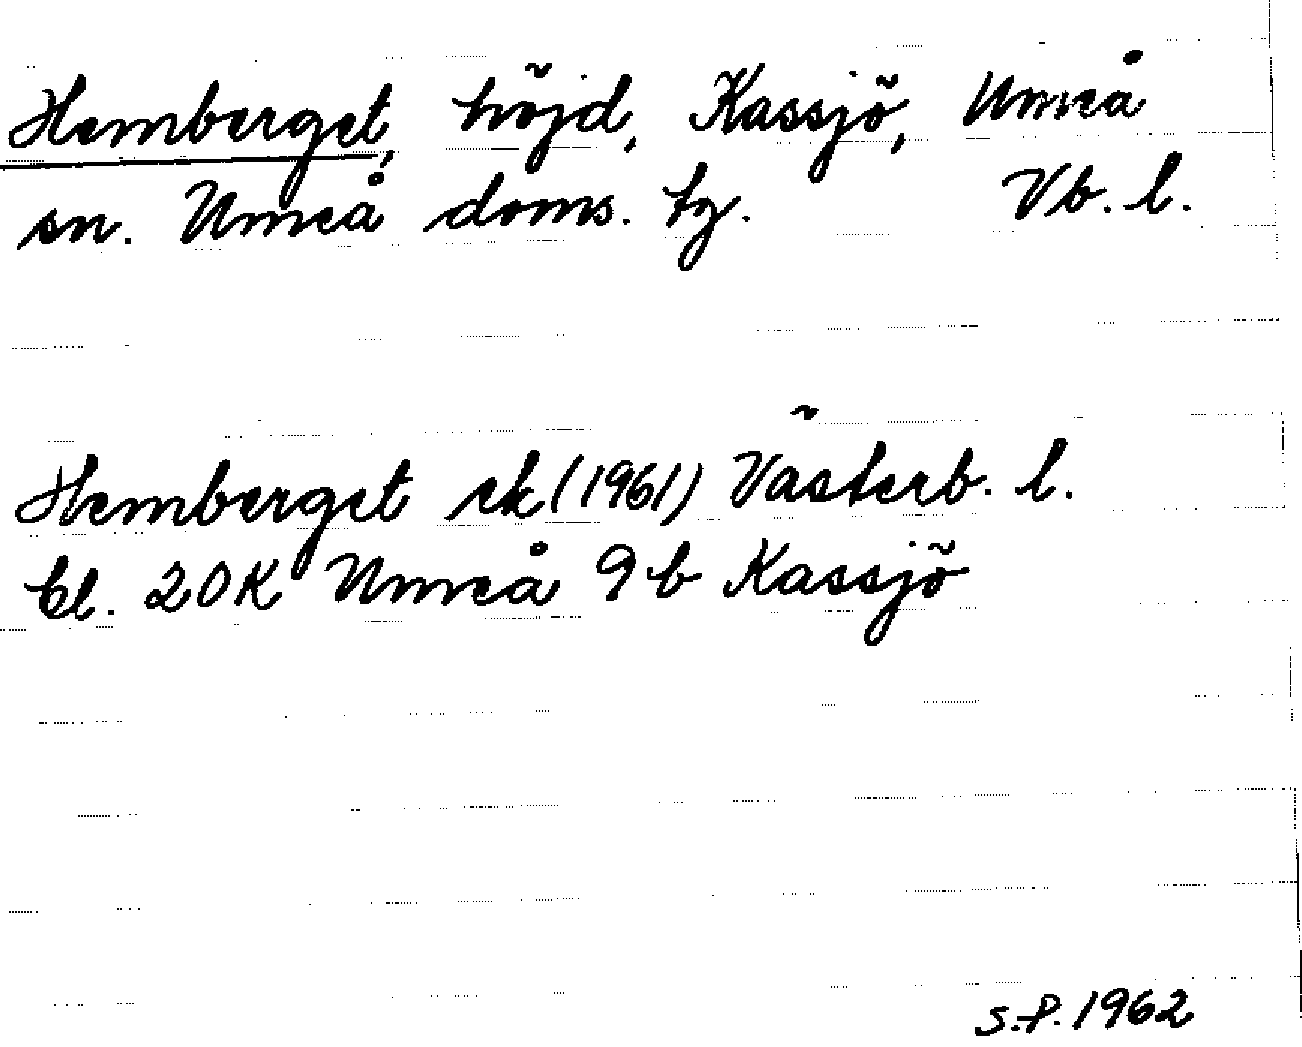 Hemberget, höjd, Kassjö, Umeå
sn. Umeå doms. tg. Vb. l.
Hemberget ek (1961) Västerb. l.
bl. 20K Umeå 9b Kassjö
S.P. 1962